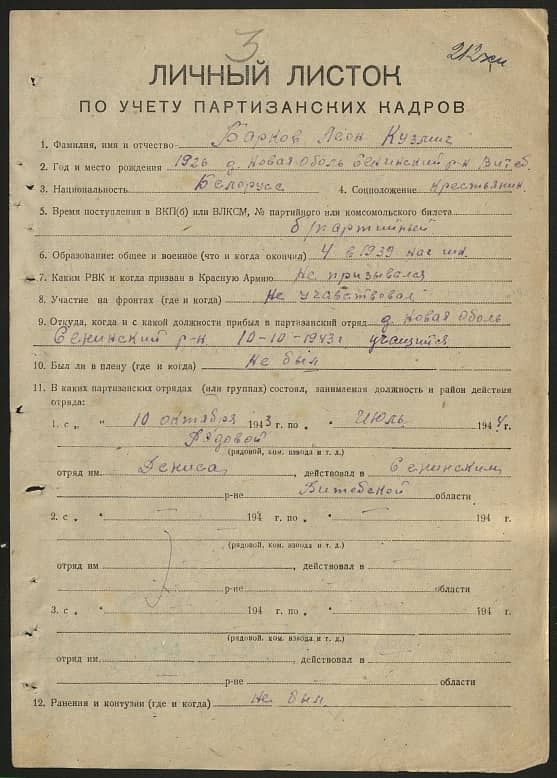 3
ЛИЧНЫЙ ЛИСТОК
ПО УЧЕТУ ПАРТИЗАНСКИХ КАДРОВ
1. Фамилия, имя и отчество Барков Леон Кузмич
2. Год и место рождения 1926 д. Новая Оболь Сенинский р-н Витеб.
3. Национальность Белорусс 4. Соцположение крестьянин
5. Время поступления в ВКП(б) или ВЛКСМ, № партийного или комсомольского билета
б/партийный
6. Образование: общее и военное (что и когда окончил) 4 в 1939 нач шк.
7. Каким РВК и когда призван в Красную Армию Не призывался
8. Участие на фронтах (где и когда) Не учавствовал
9. Откуда, когда и с какой должности прибыл в партизанский отряд д. Новая Оболь
Сенинский р-н 10-10-1943г учащийся
10. Был ли в плену (где и когда) Не был
11. В каких партизанских отрядах (или группах) состоял, занимаемая должность и район действия
отряда:
1. с „ " 10 октября 1943 г. по „ " Июль 1944 г.
Рядовой
(рядовой, ком. взвода и т. д.)
отряд им. Дениса, действовал в Сенинским
р-не Витебской области
2. с „ " — 194 г. по „ " — 194 г.
(рядовой, ком. взвода и т. д.)
отряд им , действовал в
р-не области
3. с „ " — 194 г. по „ " 194 г.
(рядовой, ком. взвода и т. д.)
отряд им. , действовал в
р-не области
12. Ранения и контузии (где и когда) Не был